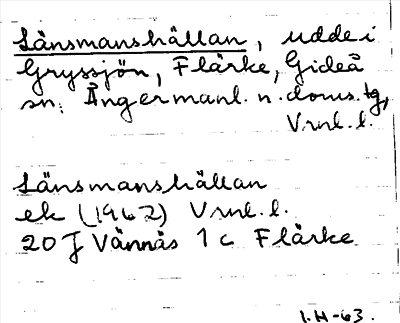 Länsmanshällan, udde i
Gryssjön, Flärke, Gideå
sn, Ångermanl. n. doms. tg,
Vrnl. l.
Länsmanshällan
ek (1962) Vrnl. l.
20 J Vännäs 1 c Flärke
I.H-63.